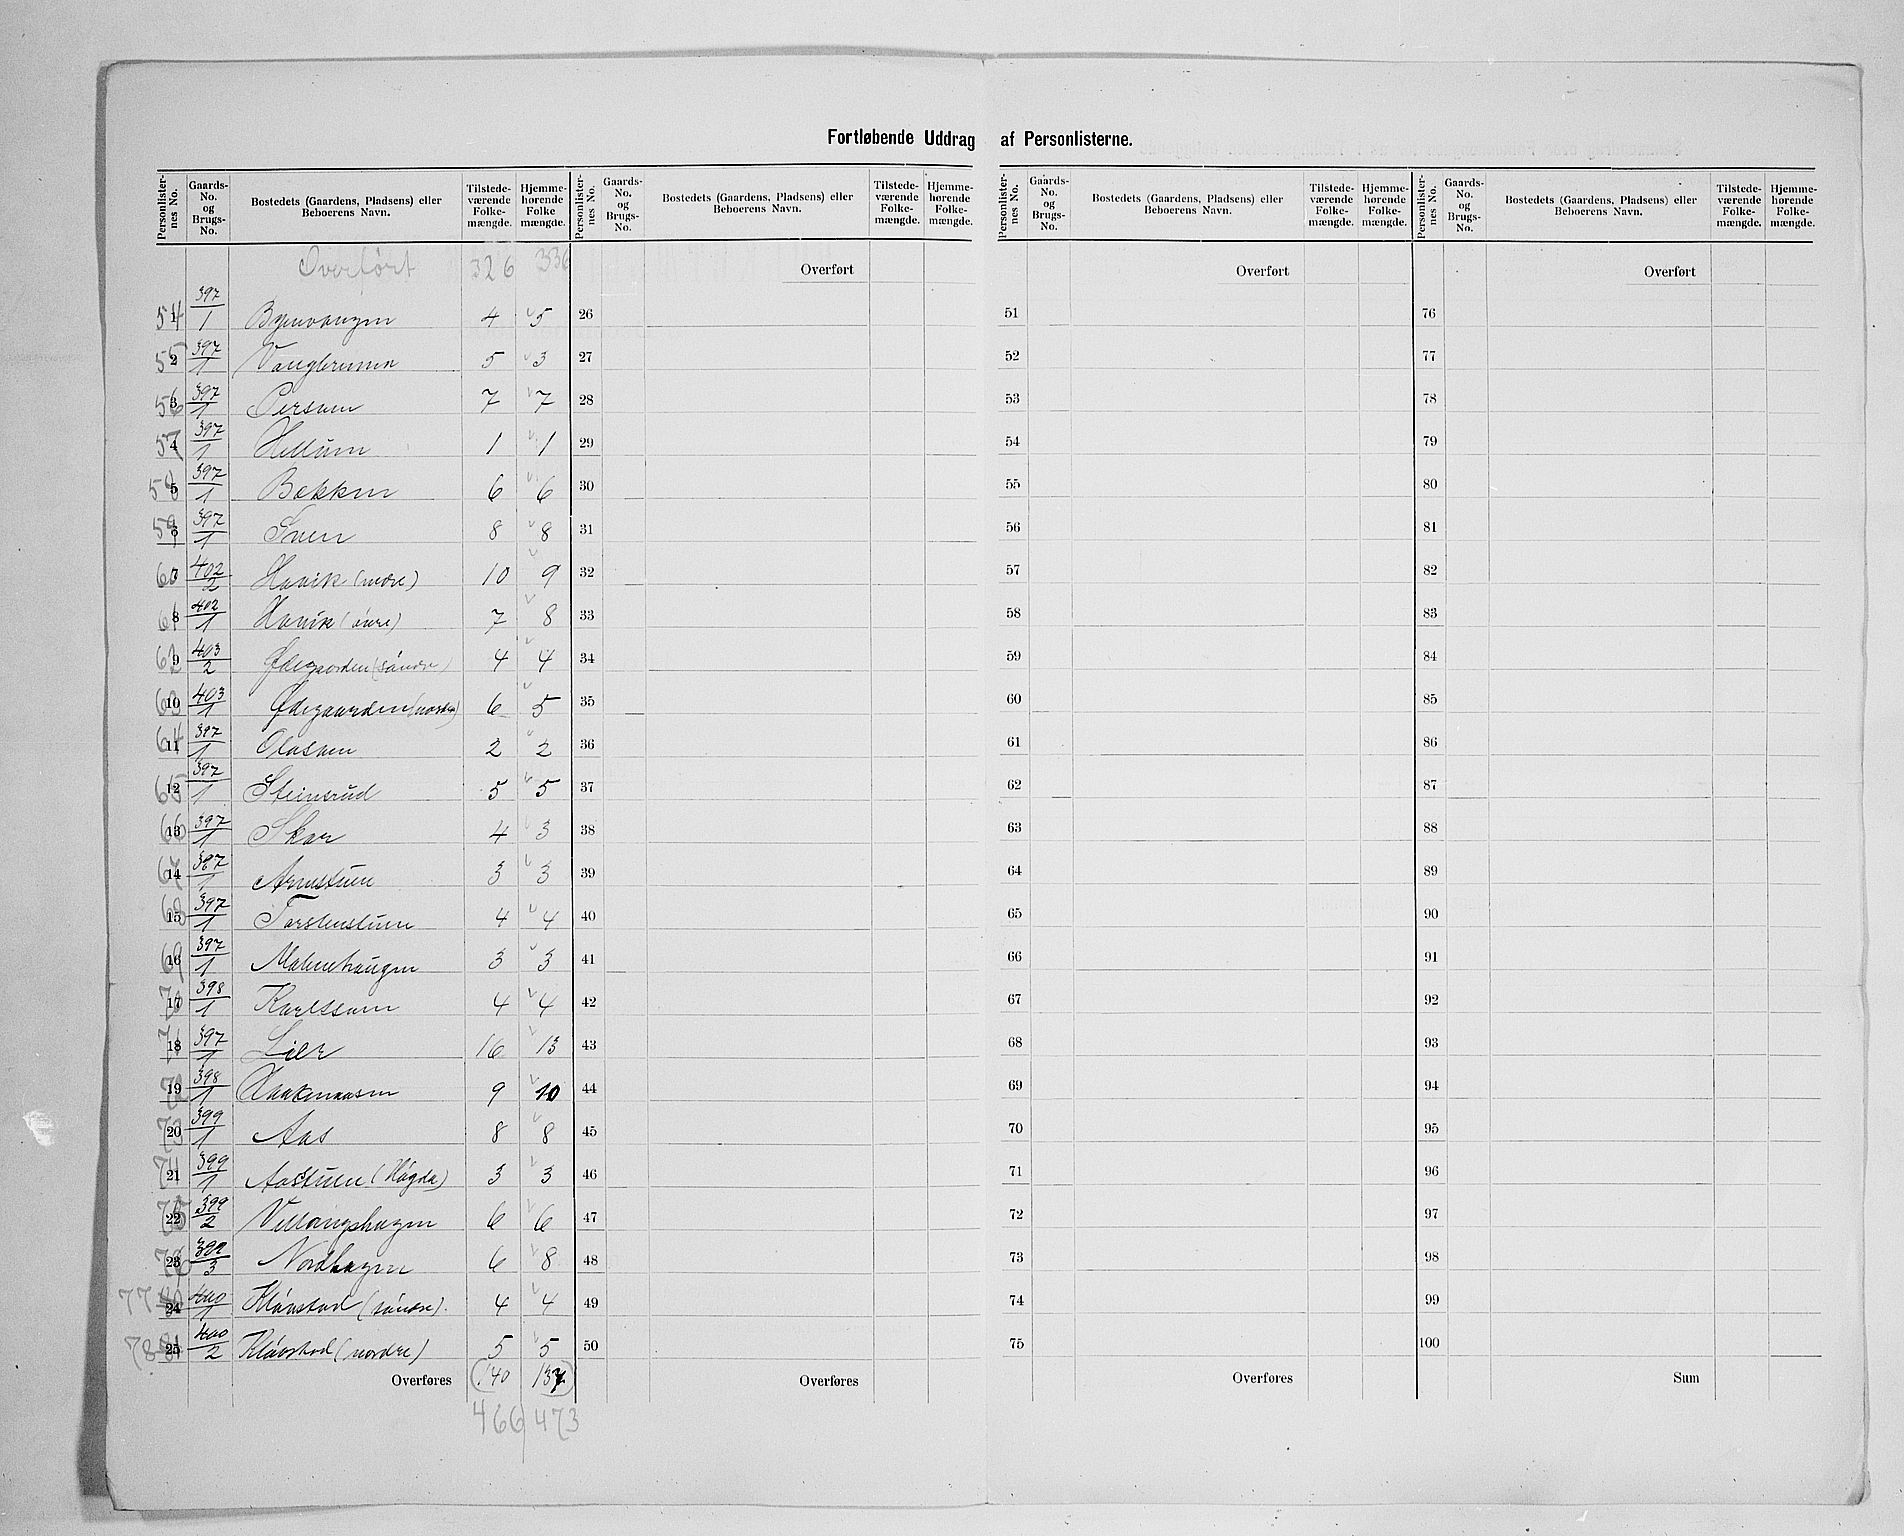 Fortløbende Uddrag af Personlisterne.
Personlisternes No. Gaards-No. og Brugs-No. Bostedets (Gaardens, Pladsens) eller Beboerens Navn. Tilstedeværende Folkemængde. Hjemmehørende Folkemængde.
Personlisternes No. Gaards-No. og Brugs-No. Bostedets (Gaardens, Pladsens) eller Beboerens Navn. Tilstedeværende Folkemængde. Hjemmehørende Folkemængde.
Personlisternes No. Gaards-No. og Brugs-No. Bostedets (Gaardens, Pladsens) eller Beboerens Navn. Tilstedeværende Folkemængde. Hjemmehørende Folkemængde.
Personlisternes No. Gaards-No. og Brugs-No. Bostedets (Gaardens, Pladsens) eller Beboerens Navn. Tilstedeværende Folkemængde. Hjemmehørende Folkemængde.
Overført 326 336 Overført Overført Overført
54 1 397/1 4 5 26 51 76
55 2 397/1 5 3 27 52 77
56 3 397/1 Persven 7 7 28 53 78
57 4 397/1 Hellum 1 1 29 54 79
58 5 397/1 Bakken 6 6 30 55 80
59 6 397/1 Sven 8 8 31 56 81
60 7 402/2 Havik (nedre) 10 9 32 57 82
61 8 402/1 Havik (övre) 7 8 33 58 83
62 9 403/2 Ødegaarden (söndre) 4 4 34 59 84
63 10 403/1 Ødegaarden (nordre) 6 5 35 60 85
64 11 397/1 Olasven 2 2 36 61 86
65 12 397/1 Steinsrud 5 5 37 62 87
66 13 397/1 Skar 4 3 38 63 88
67 14 397/1 Arnestuen 3 3 39 64 89
68 15 397/1 Torstenstuen 4 4 40 65 90
69 16 397/1 Malenehaugen 3 3 41 66 91
70 17 398/1 Karlssven 4 4 42 67 92
71 18 397/1 Lier 16 13 43 68 93
72 19 398/1 Haakenaasen 9 10 44 69 94
73 20 399/1 Aas 8 8 45 70 95
74 21 399/1 Aasstuen (Högda) 3 3 46 71 96
75 22 399/2 Vellangshagen 6 6 47 72 97
76 23 399/3 Nordhagen 6 8 48 73 98
77 24 400/1 Klövstad (söndre). 4 4 49 74 99
78 25 400/2 Klövstad (nordre) 5 5 50 75 100
Overføres 140 137 Overføres Overføres Sum
466 473